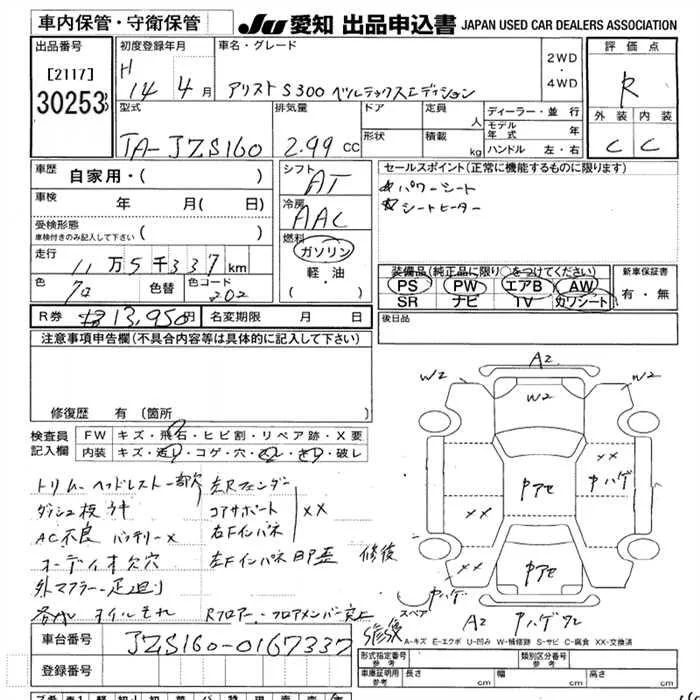 車内保管・守衛保管
JU 愛知 出品申込書 JAPAN USED CAR DEALERS ASSOCIATION
出品番号
[2117]
30253
初度登録年月
H 14 4月
車名・グレード
アリスト S300 ベルテックスエディション
2WD
・
4WD
評価点
R
外装 内装
C C
型式
TA-JZS160
排気量
2.99 CC
ドア
形状
定員 人
積載 kg
ディーラー・並行
モデル年式 年
ハンドル 左・右
車歴
自家用・( )
車検
年 月( 日)
受検形態
車検付きのみ記入して下さい ( )
走行
11万5千337km
色
色替
色コード
202
シフト
AT
冷房
AAC
燃料
ガソリン
軽・油
( )
セールスポイント(正常に機能するものに限ります)
パワーシート
シートヒーター
装備品(純正品に限り○をつけてください)
PS PW エアB AW
SR ナビ TV カワシート
新車保証書
有・無
R券 13,950円
名変期限 月 日
後日品
注意事項申告欄(不具合内容等は具体的に記入して下さい)
修復歴 有(箇所
検査員
記入欄
FW キズ・飛石・ヒビ割・リペア跡・X要
内装 キズ・汚レ・コゲ・穴・・破レ
トリム ヘッドレスト一部欠
ダッシュ板ウキ
AC不良 バッテリーX
オーディオ欠穴
外マフラー
オイルモレ
左Rフェンダー
コアサポート
右Fインパネ
XX
左Fインパネ 凹 修復
Rフロアー・フロアメンバー突上
修復
A2
W2
W2
W2
XX
XX
XX
中アセ
中ハゲ
中アセ
中ハゲ
スペア
A2 中ハゲワレ
A-キズ E-エクボ U-凹み W-補修跡 S-サビ C-腐食 XX-交換済
車台番号
JZS160-0167337
登録番号
形式指定番号
参考
類別区分番号
参考
車庫証明用
参考
長さ cm
幅 cm
高さ cm